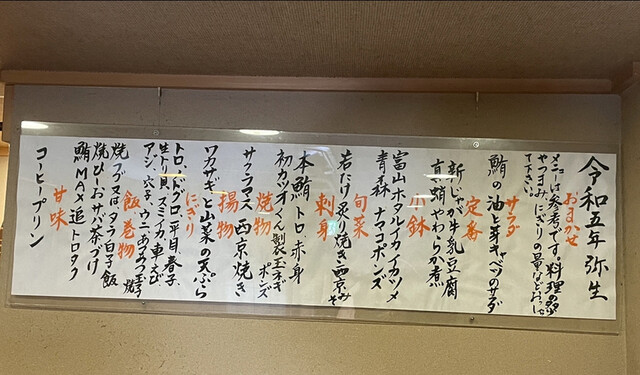 令和五年 弥生
おまかせ
メニューは参考です。料理の品数
やつまみ、にぎりの量などおっしゃっ
て下さい。
サラダ
鮪の油と芽キャベツのサラダ
定番
新じゃが牛乳豆腐
真蛸やわらか煮
小鉢
富山ホタルイカイカツメ
青森 ナマコポンズ
旬菜
若たけ炙り焼き西京みそ
刺身
本鮪トロ 赤身
初カツオくん製玉ネギポンズ
焼物
サクラマス 西京焼き
揚物
ワカサギと山菜の天ぷら
にぎり
トロ、ノドグロ、平目、春子
生トリ貝、スミイカ、車えび
アジ、穴子、ウニ、あつあつ玉子焼
飯、巻物
焼フグ又はタラ白子飯
焼ひしおサバ茶づけ
鮪MAX追トロタク
甘味
コーヒープリン